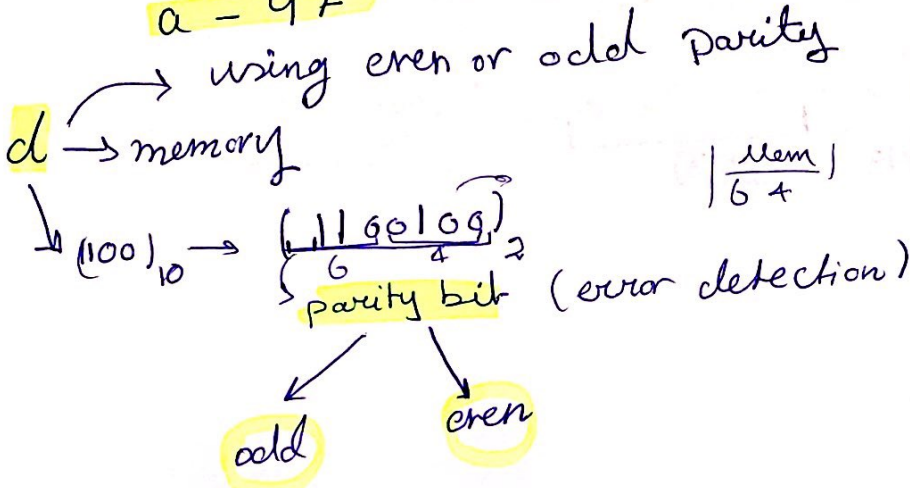 a - 97
using even or odd parity
d → memory
| Mem |
6 4
(100)₁₀ → ( , 1100100)₂
6 4
parity bit (error detection)
odd even